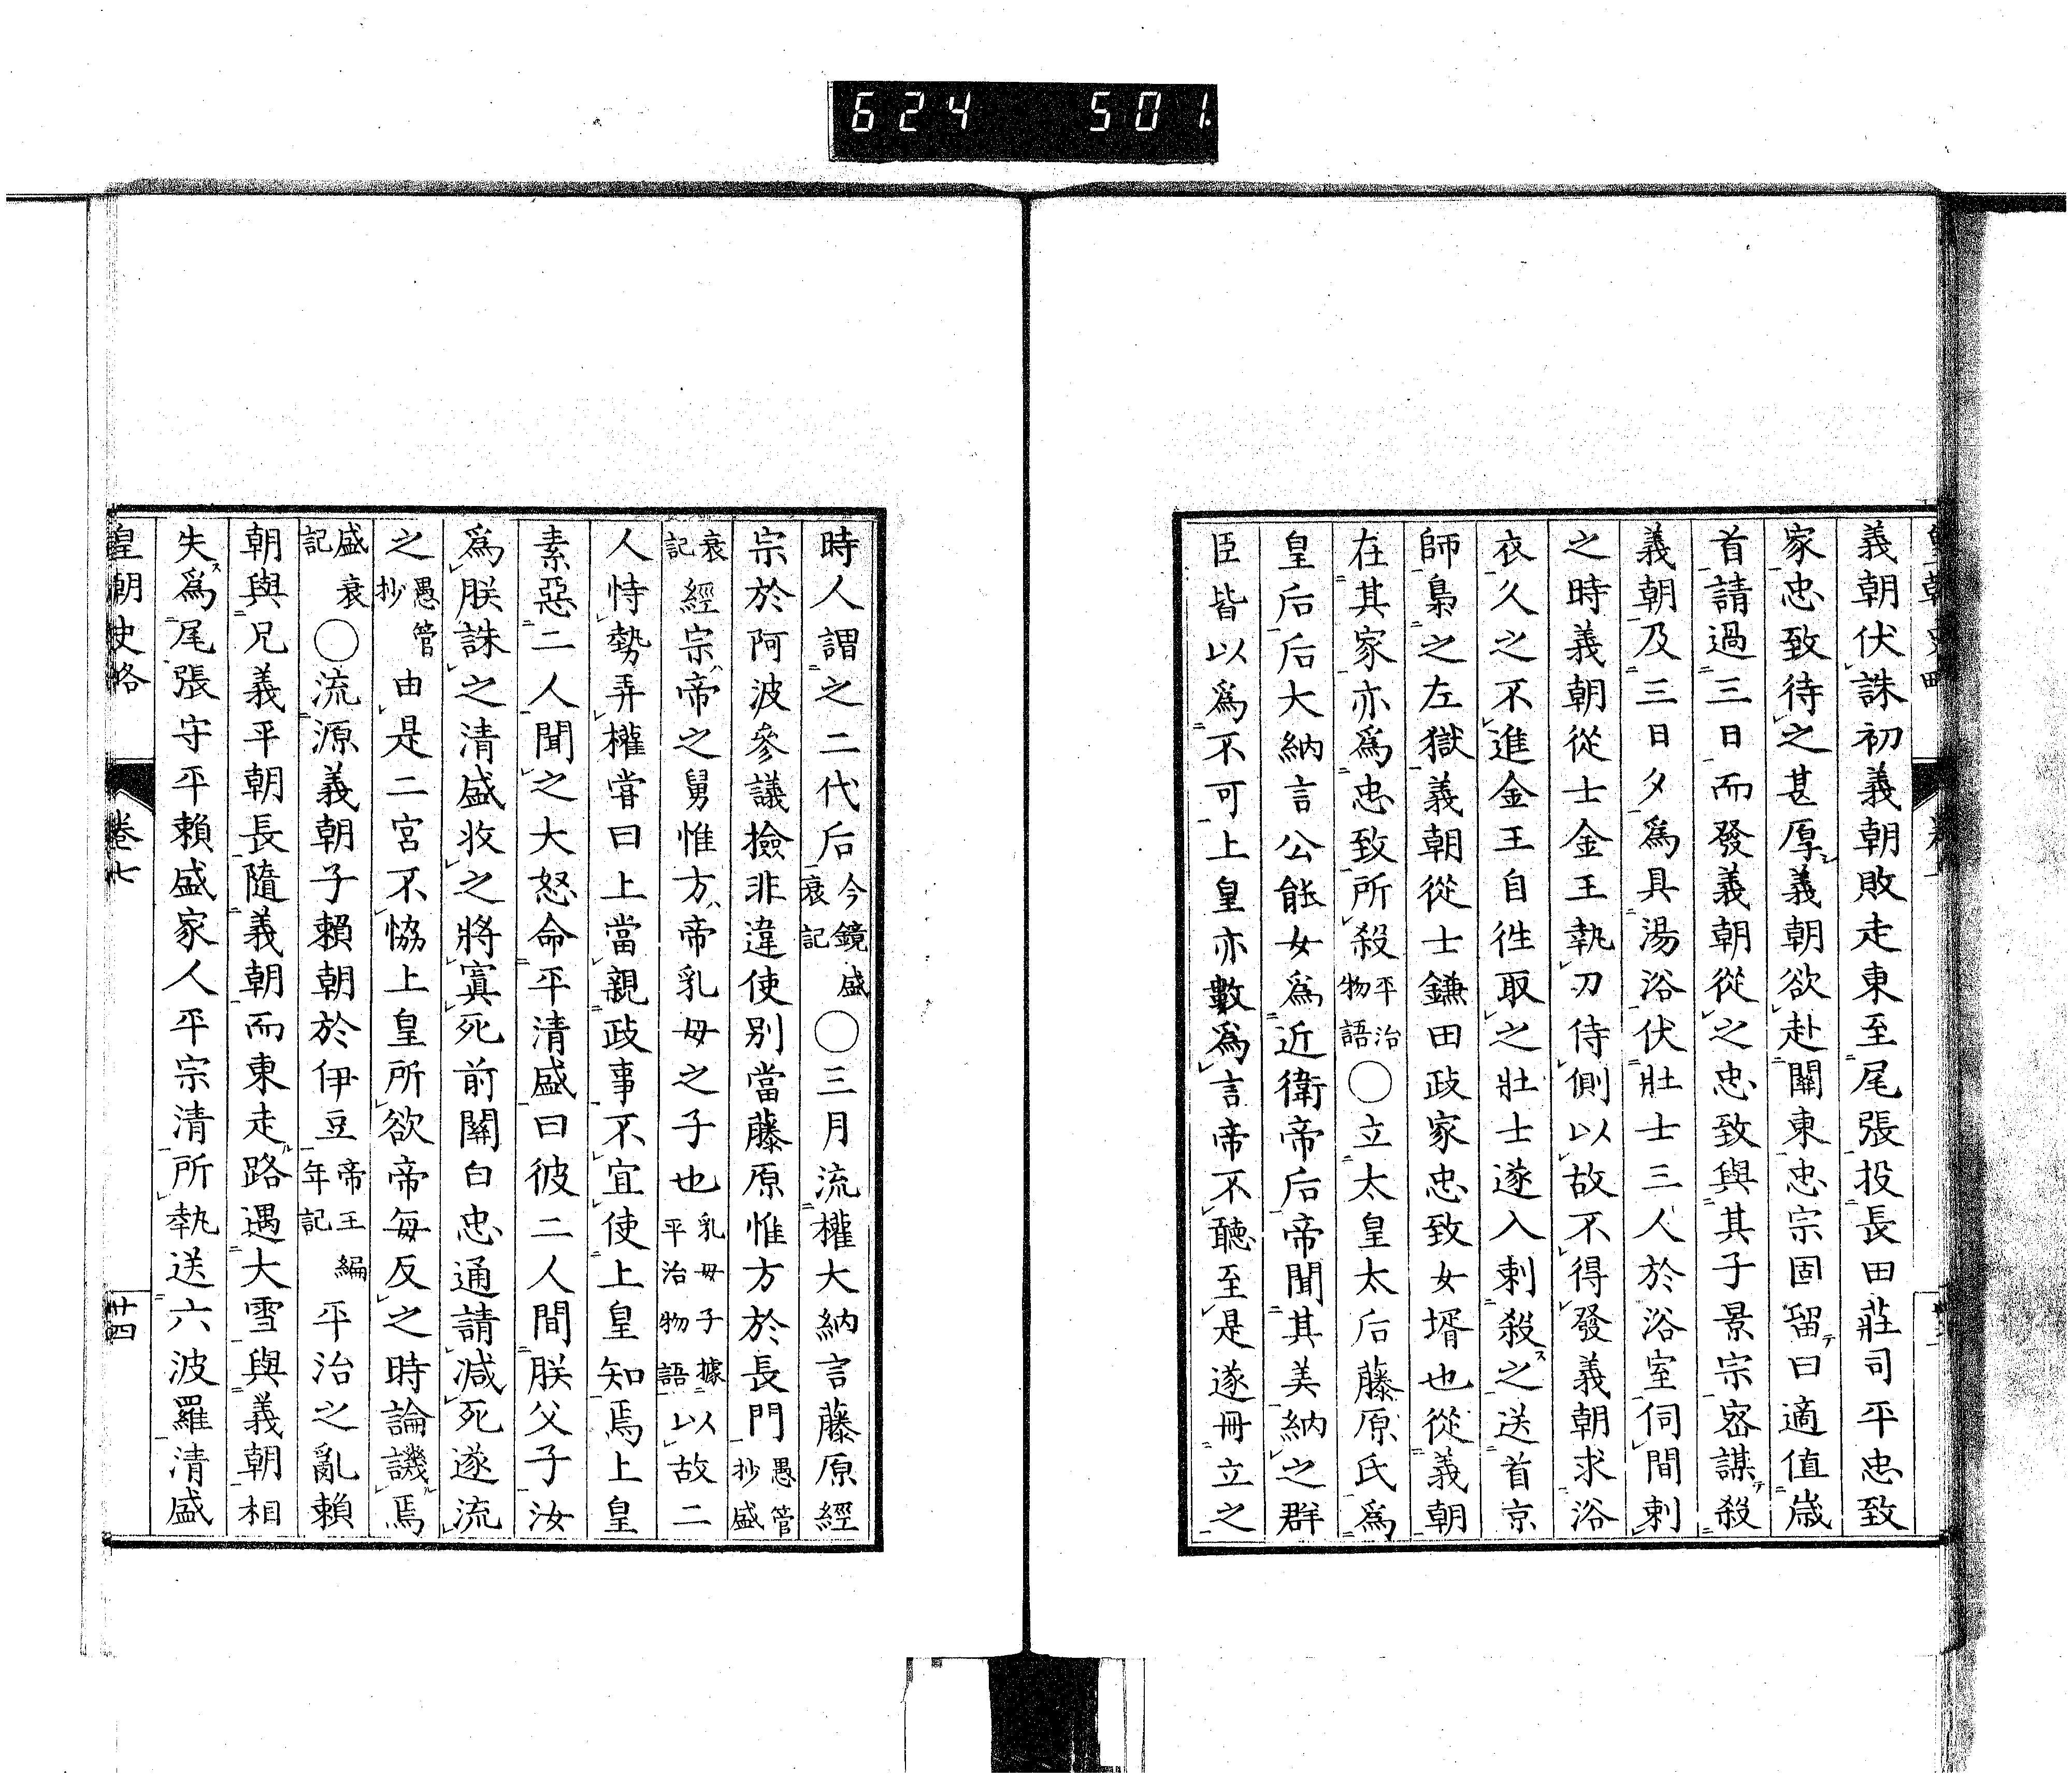 624 501
義朝伏誅初義朝敗走東至尾張投長田莊司平忠致
家忠致待之甚厚義朝欲赴關東忠宗固留曰適值歲
首請過三日而發義朝從之忠致與其子景宗密謀殺
義朝及三日夕爲具湯浴伏壯士三人於浴室伺間刺
之時義朝從士金王執刃侍側以故不得發義朝求浴
衣久之不進金王自往取之壯士遂入刺殺之送首京
師梟之左獄義朝從士鎌田政家忠致女壻也從義朝
在其家亦爲忠致所殺平治物語○立太皇太后藤原氏爲
皇后后大納言公能女爲近衛帝后帝聞其美納之群
臣皆以爲不可上皇亦數爲言帝不聽至是遂冊立之
時人謂之二代后今鏡盛衰記○三月流權大納言藤原經
宗於阿波參議撿非違使別當藤原惟方於長門愚管抄盛
衰記經宗帝之舅惟方帝乳母之子也乳母子據平治物語以故二
人恃勢弄權嘗曰上當親政事不宜使上皇知焉上皇
素惡二人聞之大怒命平清盛曰彼二人間朕父子汝
爲朕誅之清盛收之將寘死前關白忠通請減死遂流
之愚管抄由是二宮不協上皇所欲帝每反之時論譏焉
盛衰記○流源義朝子賴朝於伊豆帝王編年記平治之亂賴
朝與兄義平朝長隨義朝而東走路遇大雪與義朝相
失爲尾張守平賴盛家人平宗清所執送六波羅清盛
皇朝史略 卷七 廿四